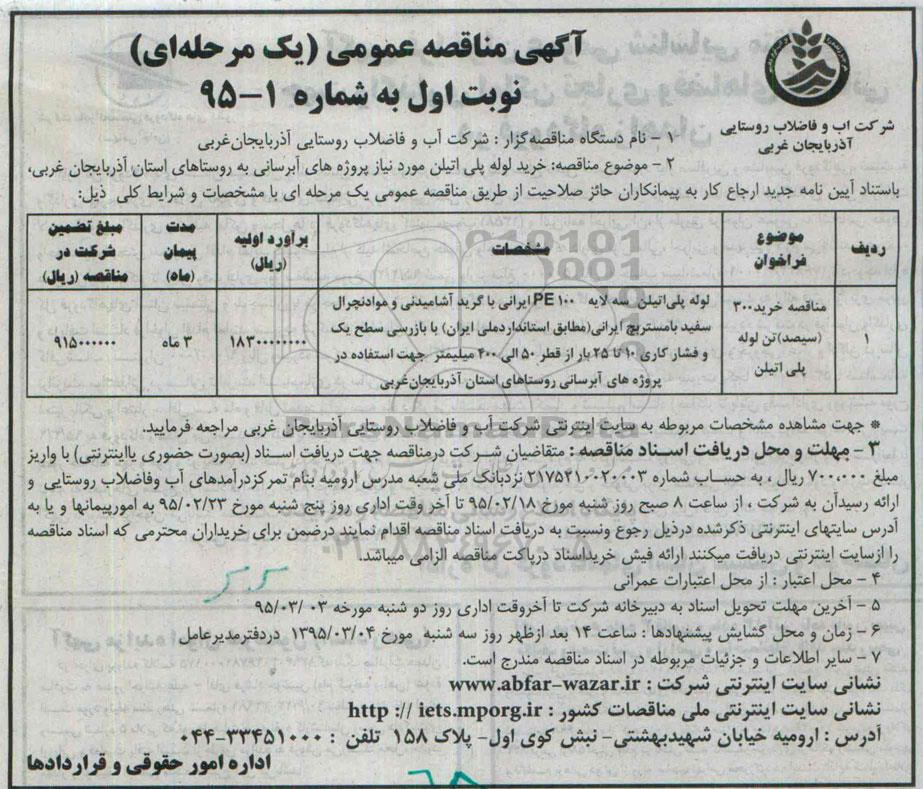 آگهی مناقصه عمومی (یک مرحله‌ای)
نوبت اول به شماره ۱-۹۵
شرکت آب و فاضلاب روستایی
آذربایجان غربی
۱- نام دستگاه مناقصه‌گزار : شرکت آب و فاضلاب روستایی آذربایجان‌غربی
۲- موضوع مناقصه: خرید لوله پلی اتیلن مورد نیاز پروژه های آبرسانی به روستاهای استان آذربایجان غربی،
باستناد آیین نامه جدید ارجاع کار به پیمانکاران حائز صلاحیت از طریق مناقصه عمومی یک مرحله ای با مشخصات و شرایط کلی ذیل:
ردیف	موضوع فراخوان	مشخصات	برآورد اولیه (ریال)	مدت پیمان (ماه)	مبلغ تضمین شرکت در مناقصه (ریال)
۱	مناقصه خرید۳۰۰ (سیصد)تن لوله پلی اتیلن	لوله پلی‌اتیلن سه لایه PE ۱۰۰ ایرانی با گرید آشامیدنی و موادنچرال سفید بامستربچ ایرانی(مطابق استانداردملی ایران) با بازرسی سطح یک و فشار کاری ۱۰ تا ۲۵ بار از قطر ۵۰ الی ۴۰۰ میلیمتر جهت استفاده در پروژه های آبرسانی روستاهای‌استان آذربایجان‌غربی	۱۸۳۰۰۰۰۰۰۰۰	۳ ماه	۹۱۵۰۰۰۰۰۰
* جهت مشاهده مشخصات مربوطه به سایت اینترنتی شرکت آب و فاضلاب روستایی آذربایجان غربی مراجعه فرمایید.
۳- مهلت و محل دریافت اسناد مناقصه : متقاضیان شرکت درمناقصه جهت دریافت اسناد (بصورت حضوری یااینترنتی) با واریز
مبلغ ۷۰۰,۰۰۰ ریال ، به حساب شماره ۲۱۷۵۲۱۰۰۲۰۰۰۳ نزدبانک ملی شعبه مدرس ارومیه بنام تمرکزدرآمدهای آب وفاضلاب روستایی و
ارائه رسیدآن به شرکت ، از ساعت ۸ صبح روز شنبه مورخ ۹۵/۰۲/۱۸ تا آخر وقت اداری روز پنج شنبه مورخ ۹۵/۰۲/۲۳ به امورپیمانها و یا به
آدرس سایتهای اینترنتی ذکرشده درذیل رجوع ونسبت به دریافت اسناد مناقصه اقدام نمایند درضمن برای خریداران محترمی که اسناد مناقصه
را ازسایت اینترنتی دریافت میکنند ارائه فیش خریداسناد درپاکت مناقصه الزامی میباشد.
۴- محل اعتبار : از محل اعتبارات عمرانی
۵- آخرین مهلت تحویل اسناد به دبیرخانه شرکت تا آخروقت اداری روز دو شنبه مورخه ۰۳ /۹۵/۰۳
۶- زمان و محل گشایش پیشنهادها : ساعت ۱۴ بعد ازظهر روز سه شنبه مورخ ۱۳۹۵/۰۳/۰۴ دردفترمدیرعامل
۷- سایر اطلاعات و جزئیات مربوطه در اسناد مناقصه مندرج است.
نشانی سایت اینترنتی شرکت : www.abfar-wazar.ir
نشانی سایت اینترنتی ملی مناقصات کشور : http :// iets.mporg.ir
آدرس : ارومیه خیابان شهیدبهشتی- نبش کوی اول- پلاک ۱۵۸ تلفن : ۳۳۴۵۱۰۰۰-۰۴۴
اداره امور حقوقی و قراردادها